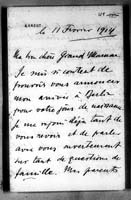 le 11 Février 1914
Ma bien chère Grand'Maman
Je suis si content de
pouvoir vous annoncer
mon arrivée à
pour votre jour de naissance
Je me réjouis déjà tant de
vous revoir et de parler
avec vous ouvertement
sur tant de questions de
famille. Mes parents